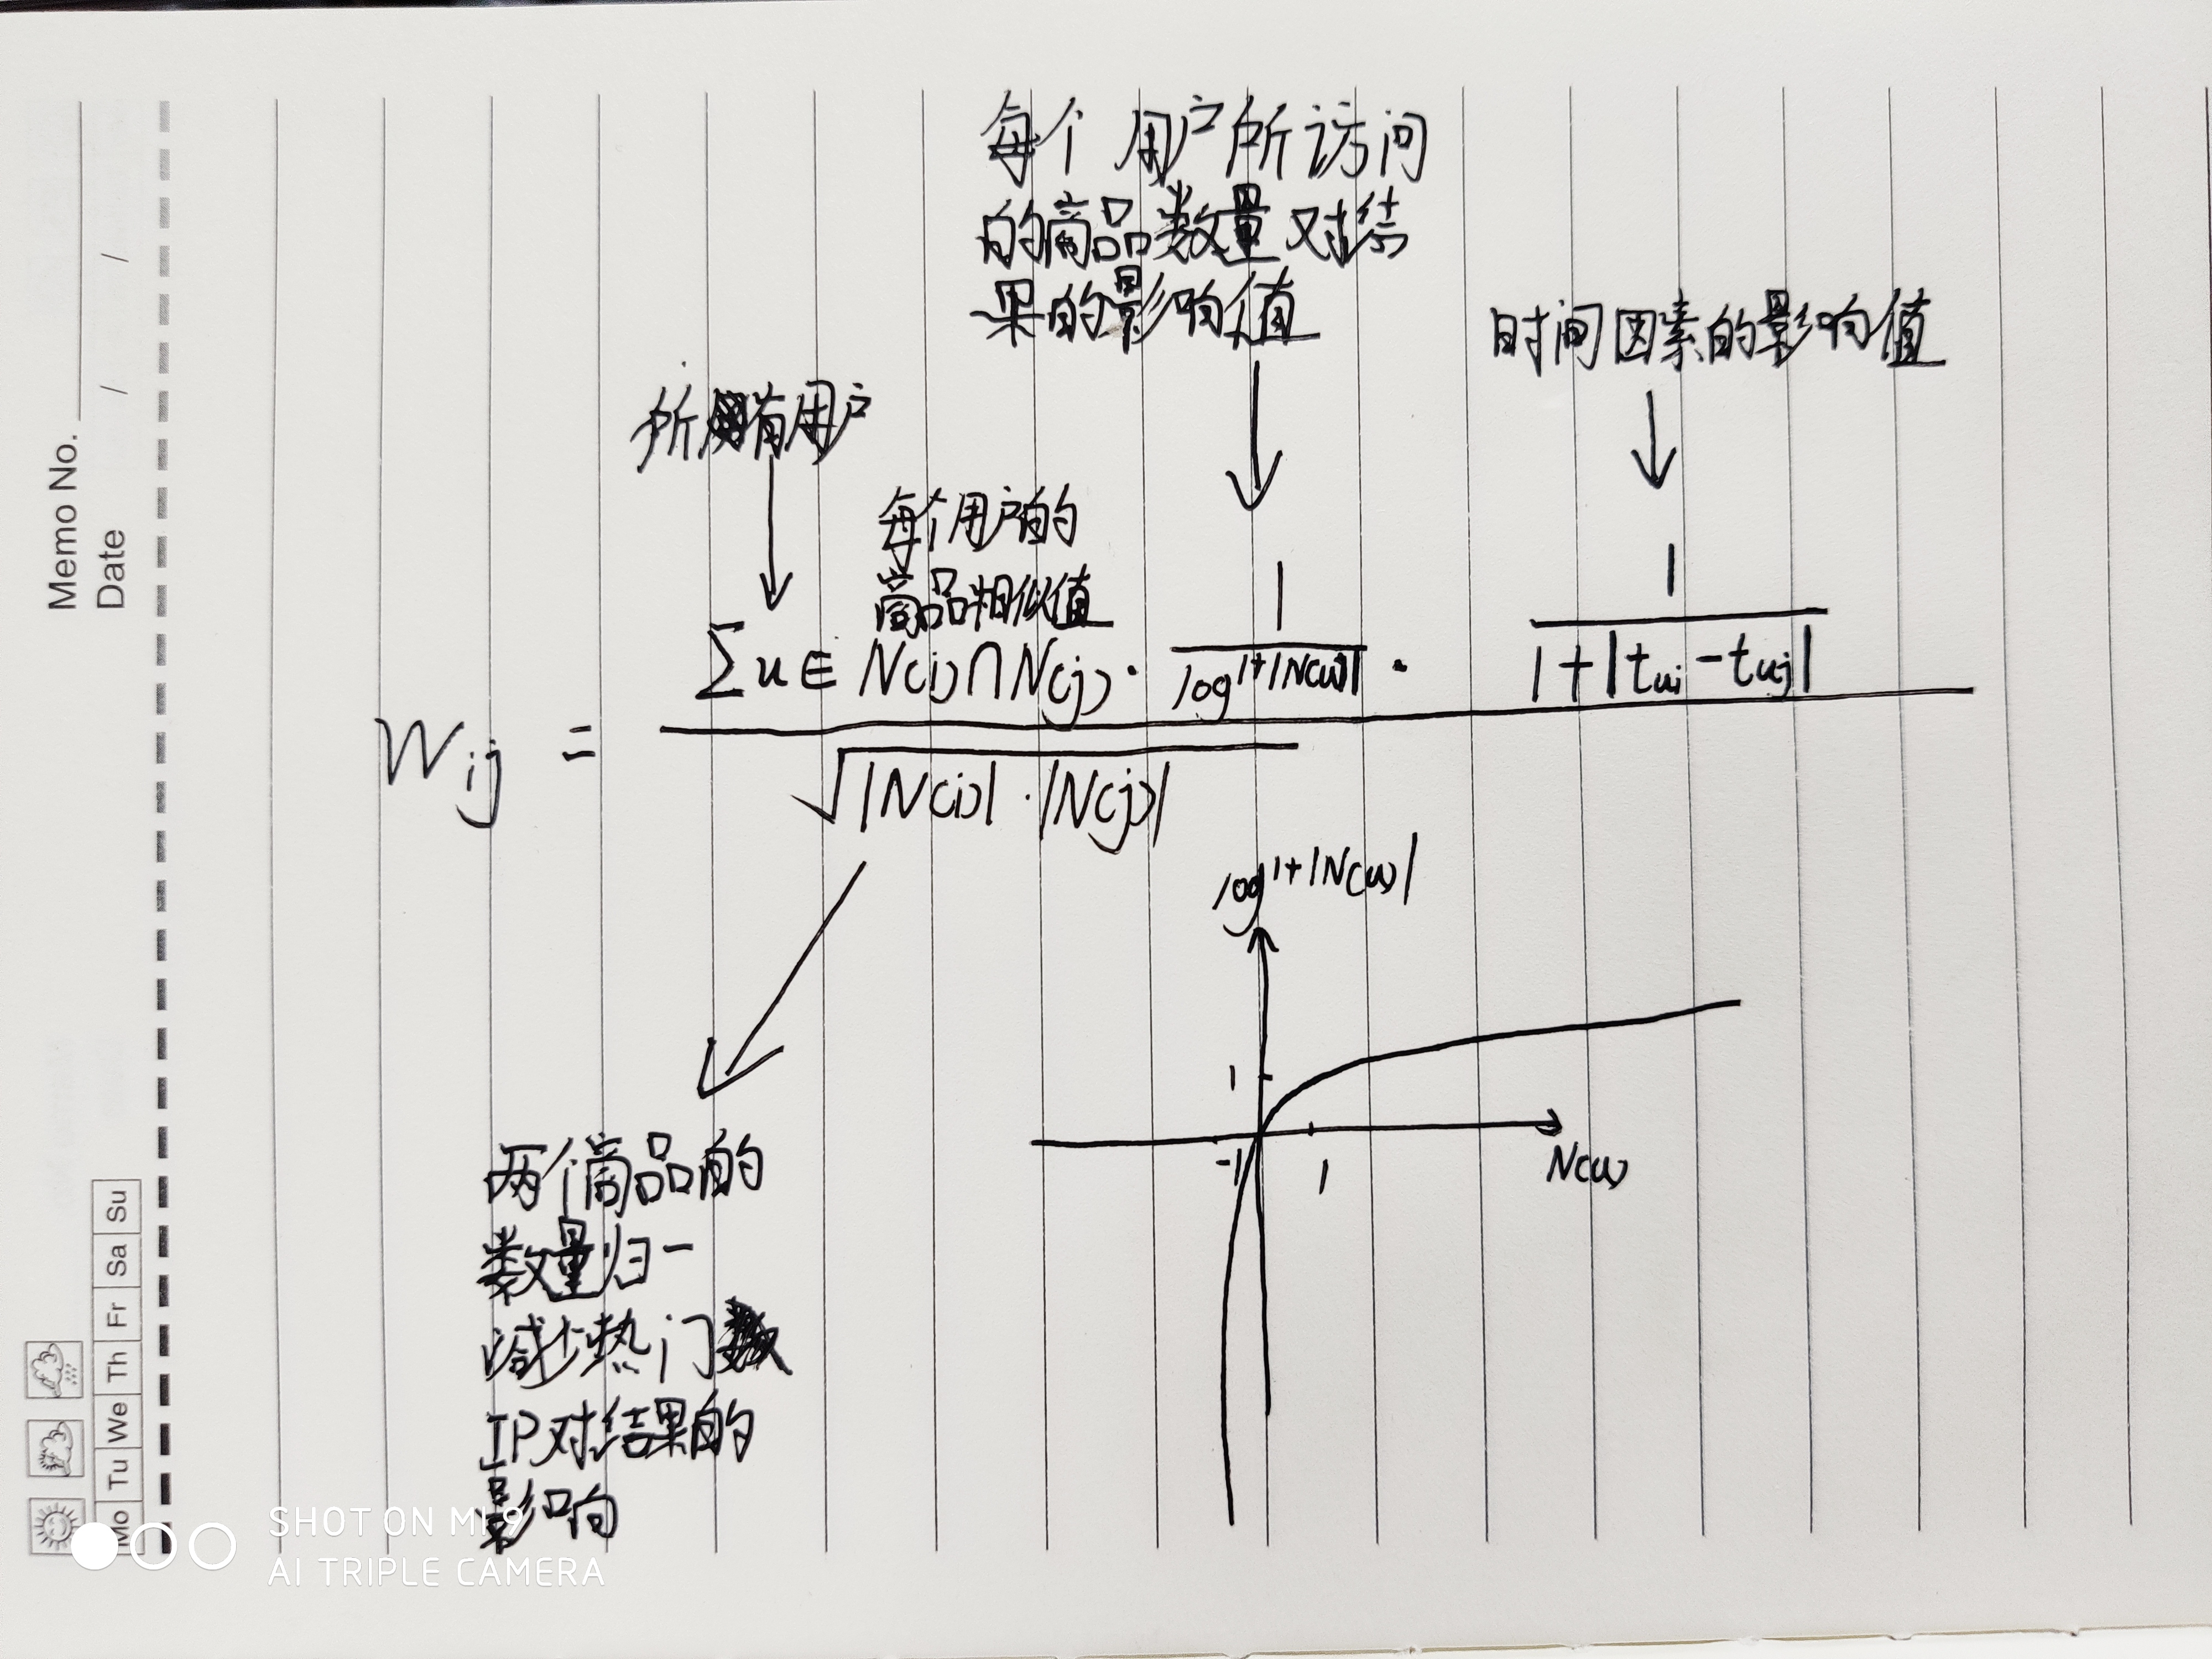 每个用户所访问
的商品数量对结
果的影响值
时间因素的影响值
所有用户
每个用户的
商品相似值
1
1
∑u∈N(i)∩N(j)·
log1+|N(u)|
·
1+|tui-tuj|
Wij =
√|N(i)|·|N(j)|
log1+|N(u)|
1
-1
1
N(u)
两个商品的
数量归一
减少热门
IP对结果的
影响
Memo No.
Date / /
Mo Tu We Th Fr Sa Su
SHOT ON MI 9
AI TRIPLE CAMERA